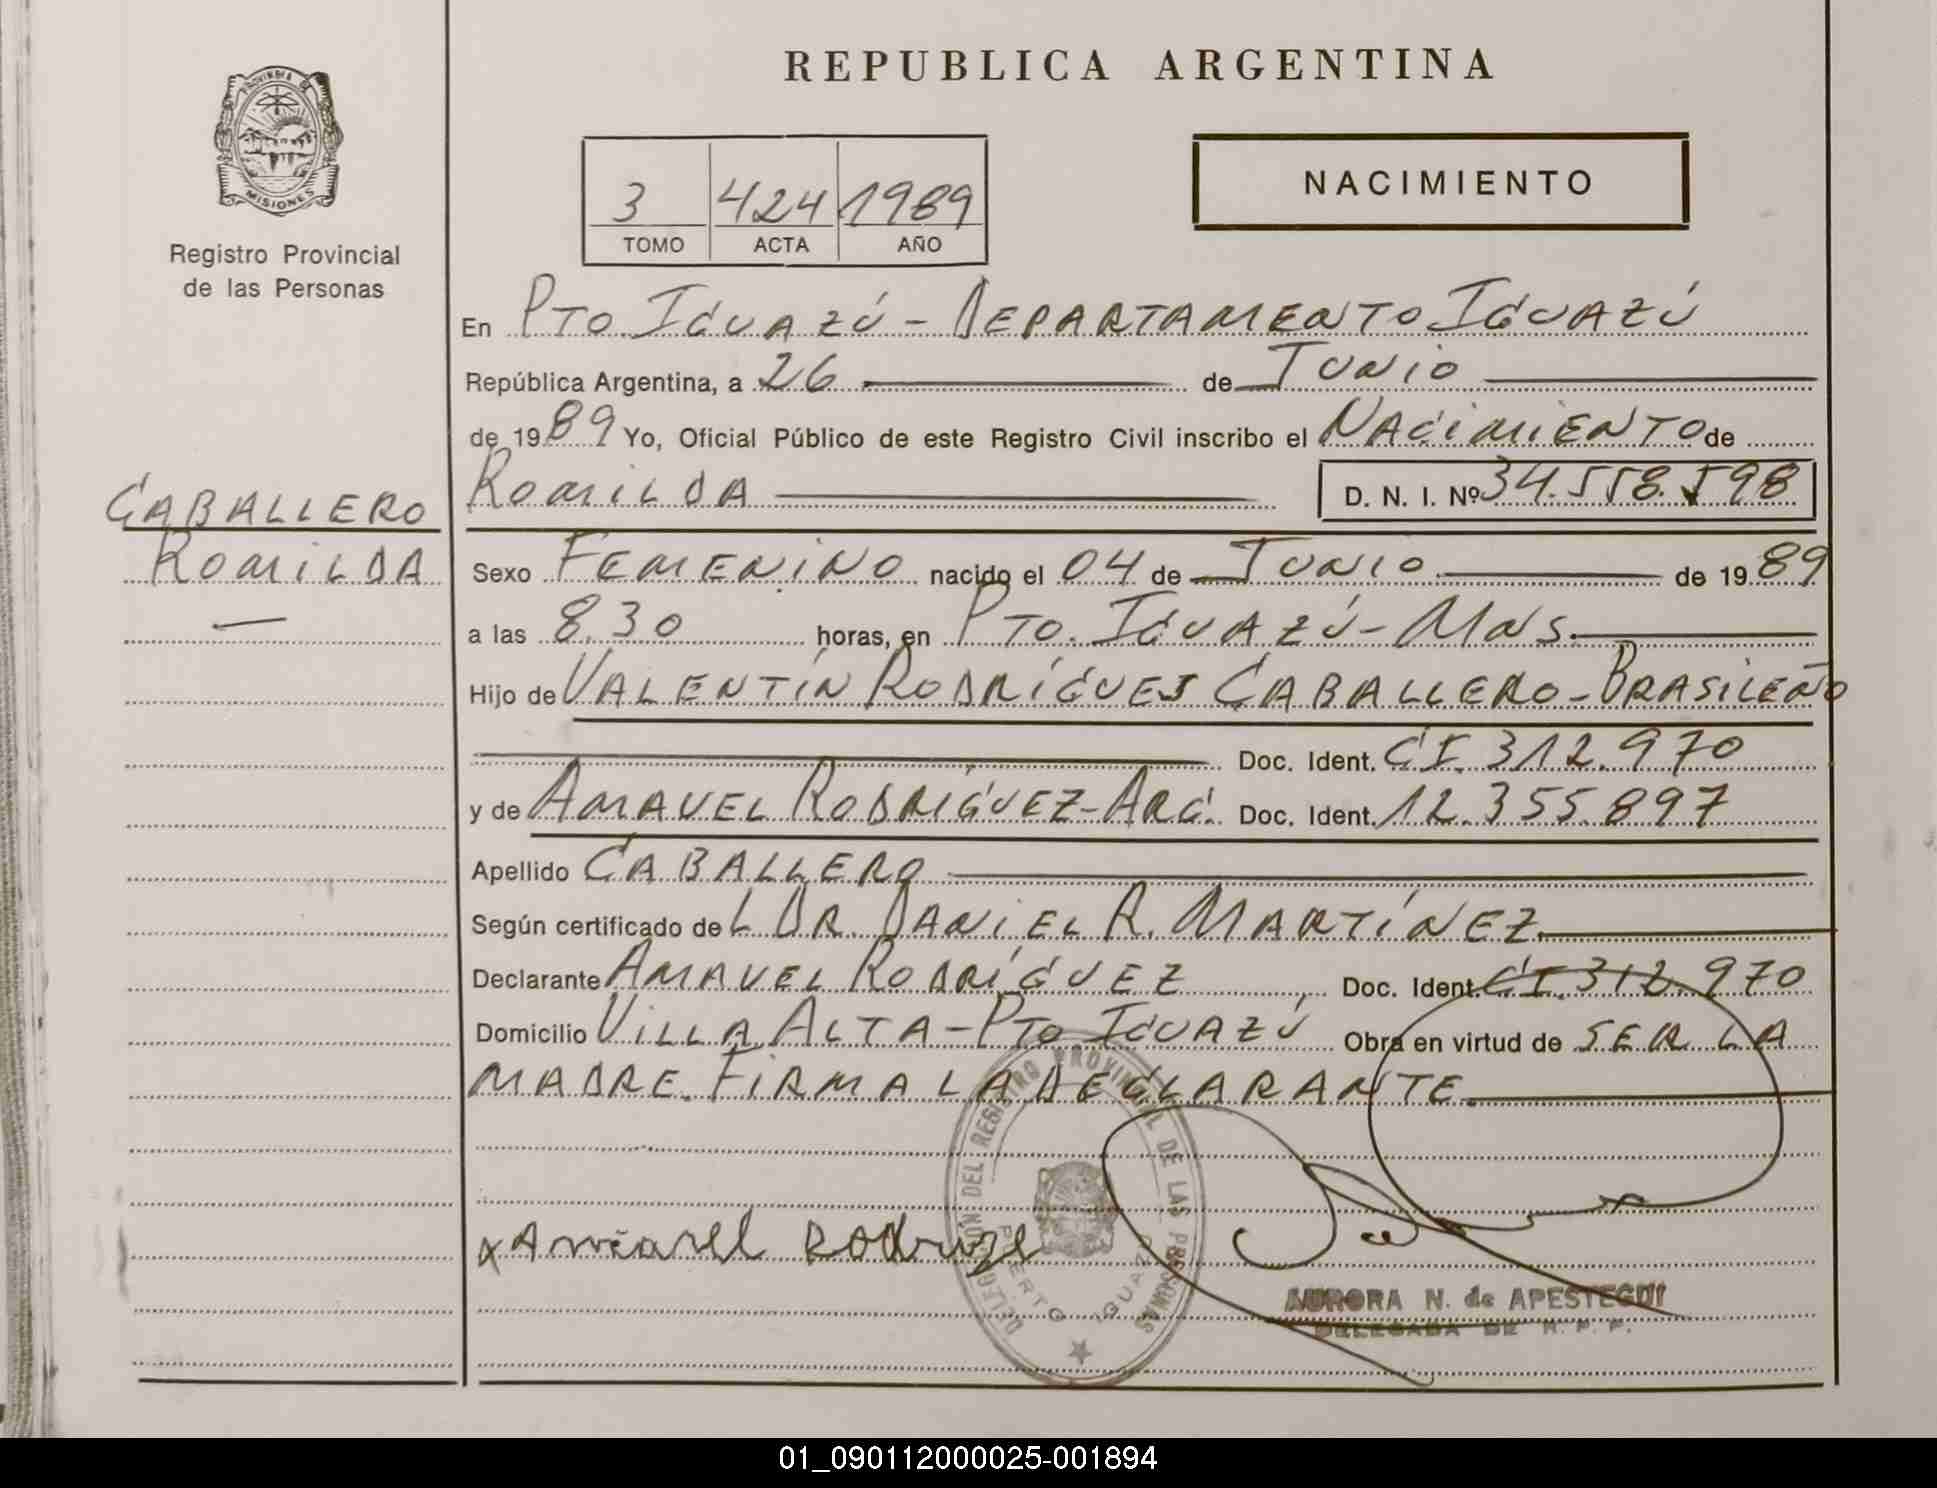 REPUBLICA ARGENTINA
PROVINCIA DE
MISIONES
Registro Provincial
de las Personas
3 424 1989
TOMO ACTA AÑO
NACIMIENTO
En PTO. IGUAZÚ - DEPARTAMENTO IGUAZÚ
República Argentina, a 26 de JUNIO
de 1989 Yo, Oficial Público de este Registro Civil inscribo el NACIMIENTO de
ROMILDA D. N. I. Nº 34.558.598
CABALLERO
ROMILDA
Sexo FEMENINO nacido el 04 de JUNIO de 1989
a las 8.30 horas, en PTO. IGUAZÚ - MNS.
Hijo de VALENTÍN RODRÍGUES CABALLERO - BRASILEÑO
Doc. Ident. CI. 312.970
y de AMAVEL RODRÍGUEZ - ARG. Doc. Ident. 12.355.897
Apellido CABALLERO
Según certificado de L DR. DANIEL R. MARTÍNEZ
Declarante AMAVEL RODRÍGUEZ Doc. Ident. CI. 312.970
Domicilio VILLA ALTA - PTO IGUAZÚ Obra en virtud de SER LA
MADRE. FIRMA LA DECLARANTE.
DELEGACIÓN DEL REGISTRO PROVINCIAL DE LAS PERSONAS
PUERTO IGUAZÚ
AURORA N. de APESTEGUI
DELEGADA DE R. P. P.
01_090112000025-001894